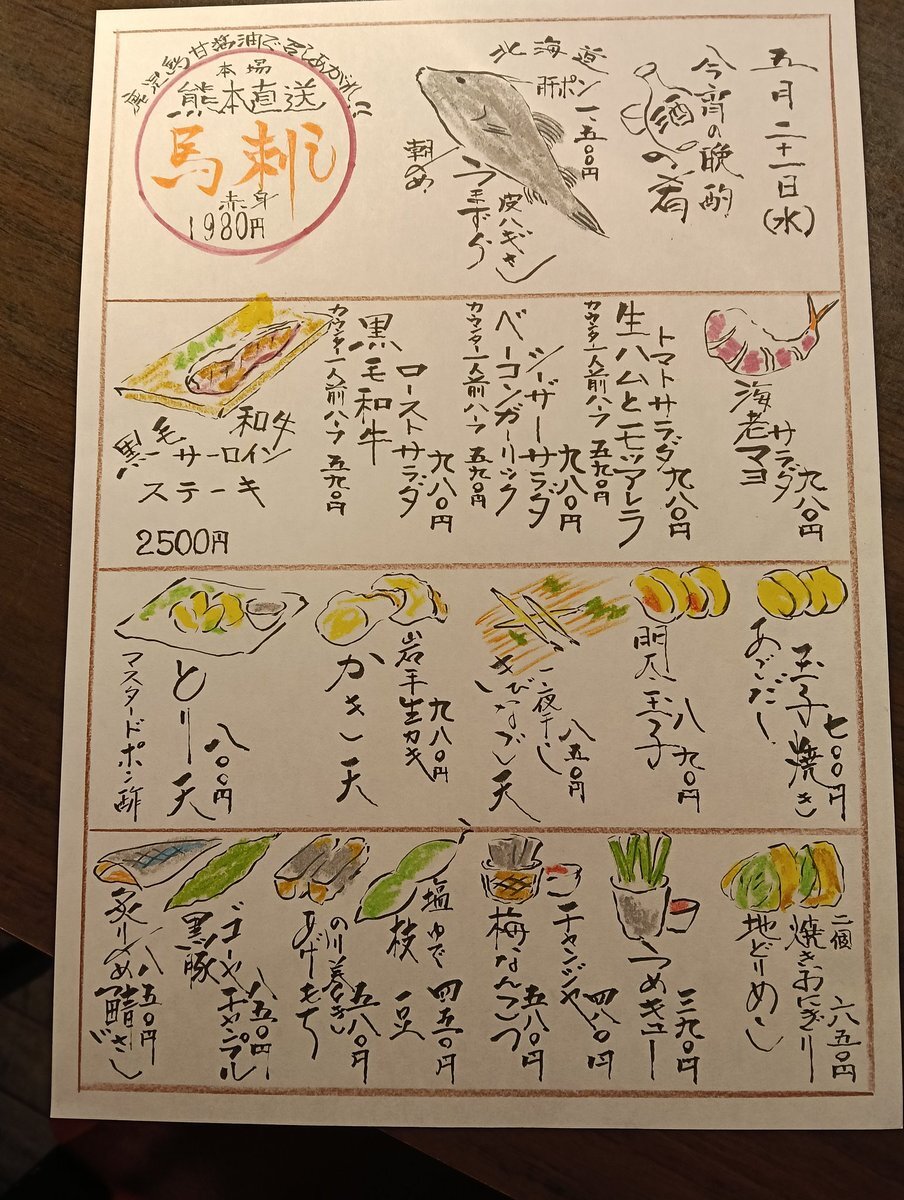 五月二十一日(水)
今宵の晩酌
酒の肴
北海道
肝ポン 一、五〇〇円
朝〆
うまずら
皮ハぎさし
鹿児島甘醤油で召しあがれ!!
本場
熊本直送
馬刺し
赤身
1980円
海老マヨ
サラダ 九八〇円
生ハムとモッツアレラ
トマトサラダ 九八〇円
カウンター一人前ハーフ 五九〇円
ベーコンガーリック
シーザーサラダ 九八〇円
カウンター一人前ハーフ 五九〇円
黒毛和牛
ローストサラダ 九八〇円
カウンター一人前ハーフ 五九〇円
黒毛和牛
サーロイン
ステーキ
2500円
あごだし
玉子焼き 七〇〇円
明太玉子 八九〇円
一夜干し
きびなご天 八五〇円
岩手生カキ
かき天 九八〇円
とり天 八〇〇円
マスタードポン酢
二個
焼きおにぎり
地どりめし 六五〇円
つめキュー 三九〇円
チャンジャ 四八〇円
梅なんこつ 五八〇円
塩ゆで
枝豆 四五〇円
のり巻き
あげもち 五八〇円
黒豚
ゴーヤチャンプル 八五〇円
炙り〆鯖さし 八五〇円